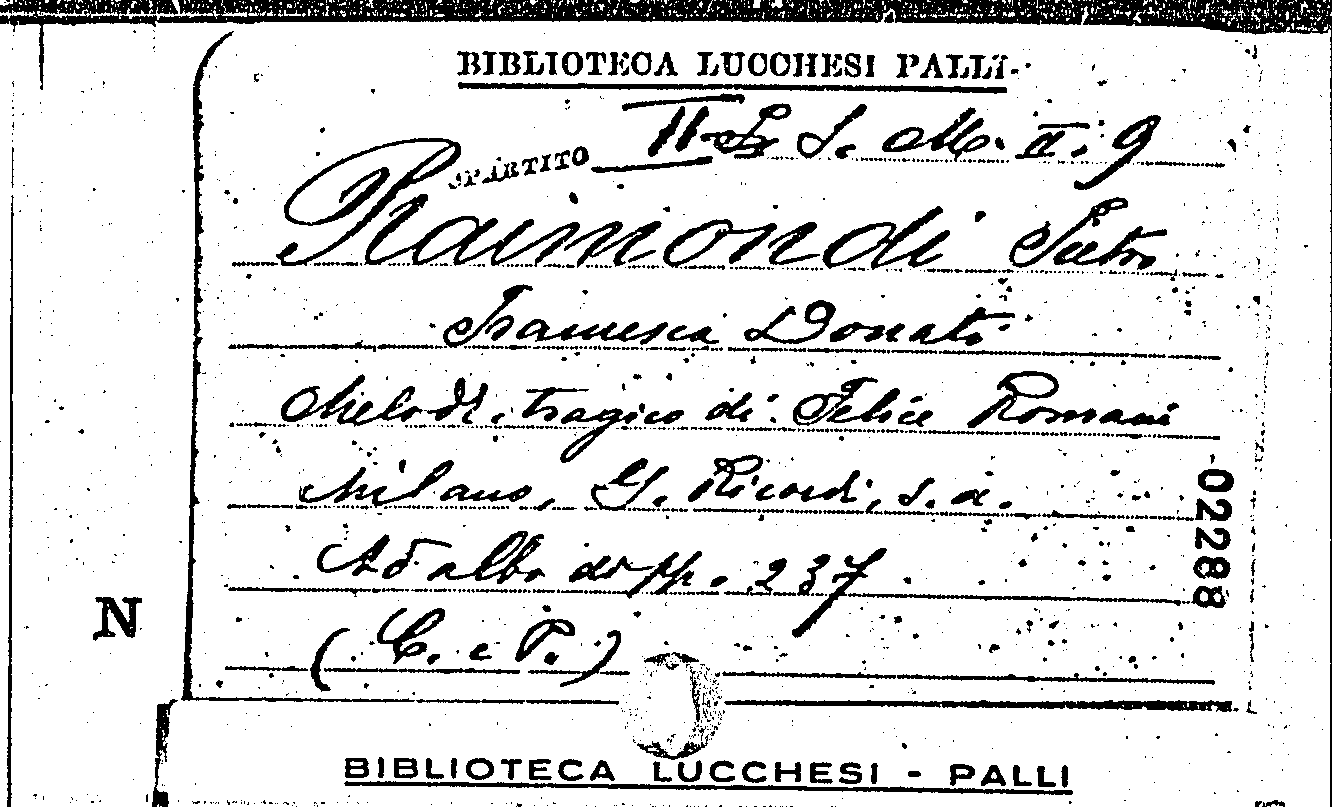 BIBLIOTECA LUCCHESI PALLI
SPARTITO S. M. II. 9
Raimondi Pietro
Francesca Donato
Melodr. tragico di Felice Romani
Milano, G. Ricordi, s. a.
Ad albo di pp. 237
(C. e P.)
02288
N
BIBLIOTECA LUCCHESI - PALLI